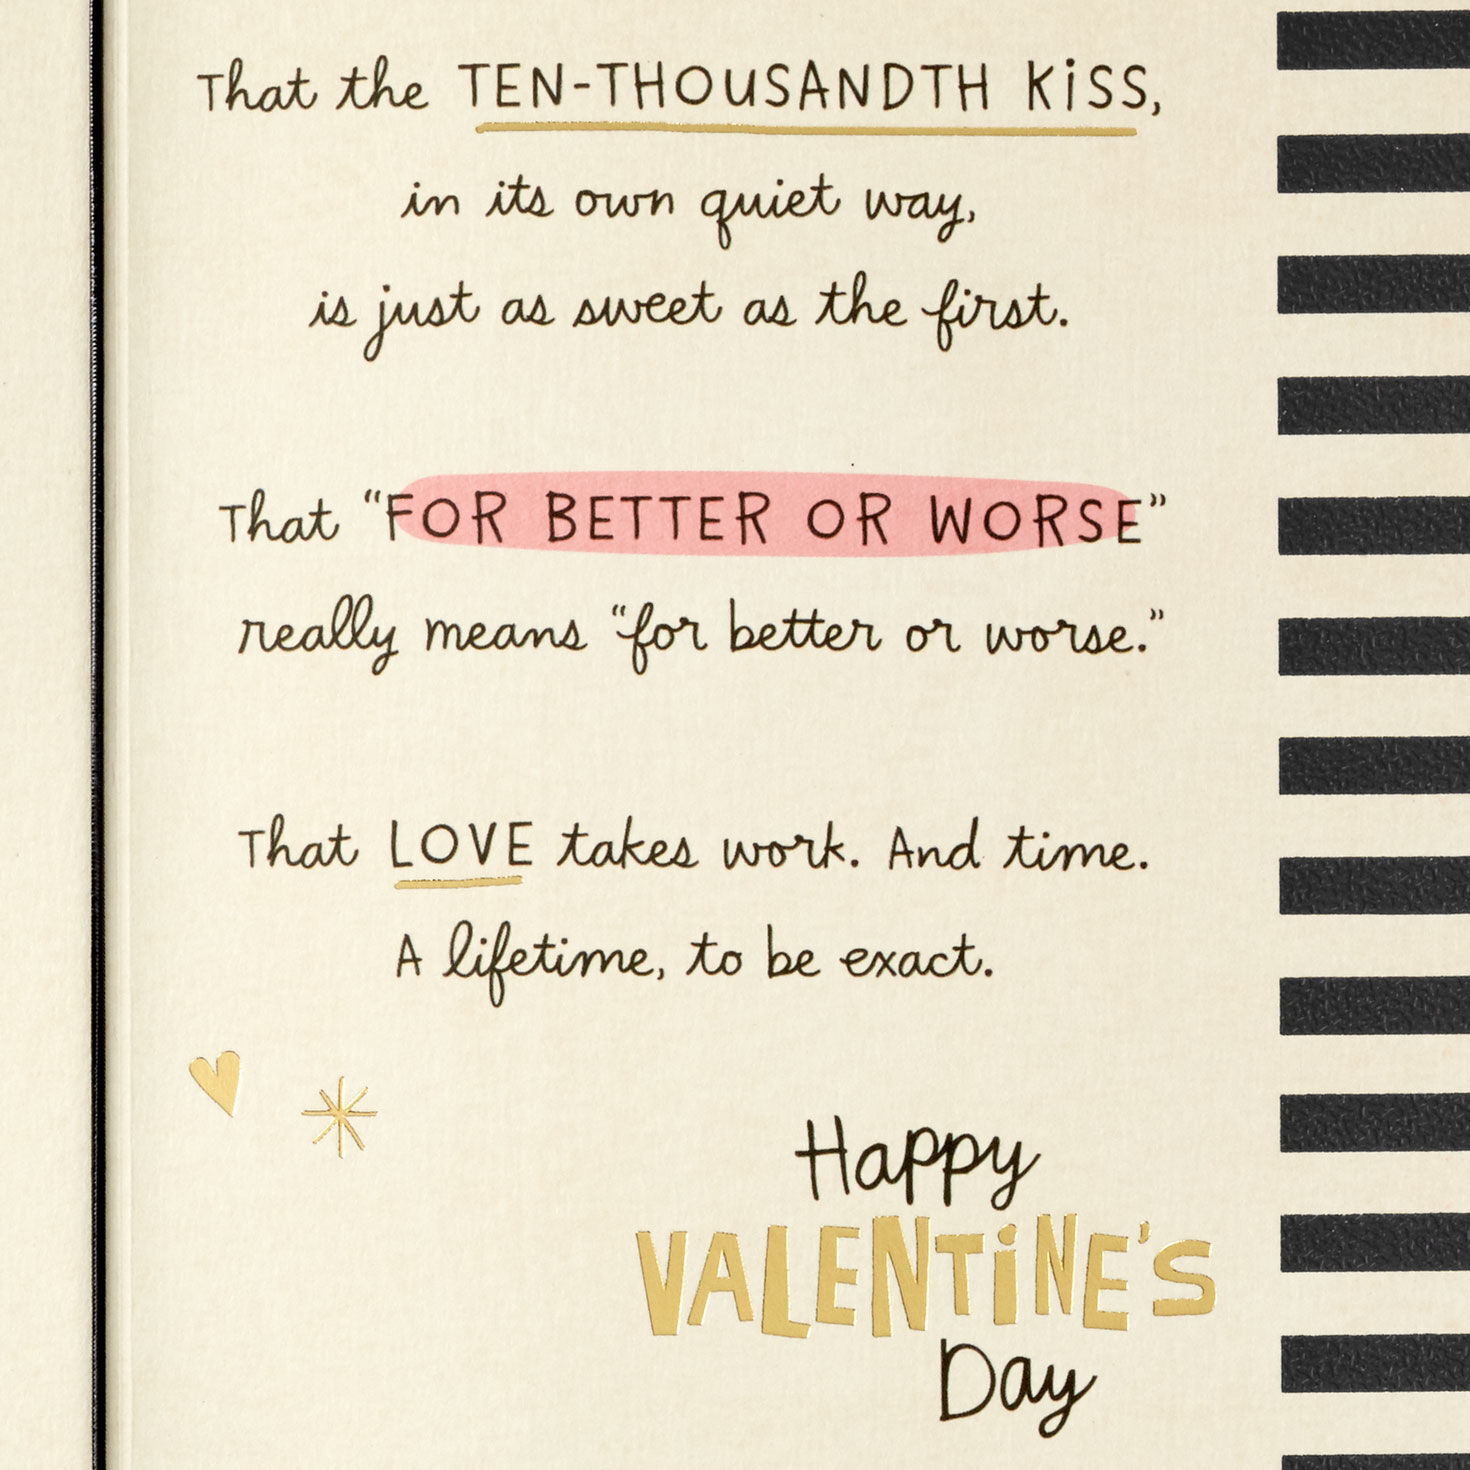 That the TEN-THOUSANDTH KISS,
in its own quiet way,
is just as sweet as the first.
That “FOR BETTER OR WORSE”
really means “for better or worse.”
That LOVE takes work. And time.
A lifetime, to be exact.
Happy
VALENTINE'S
Day